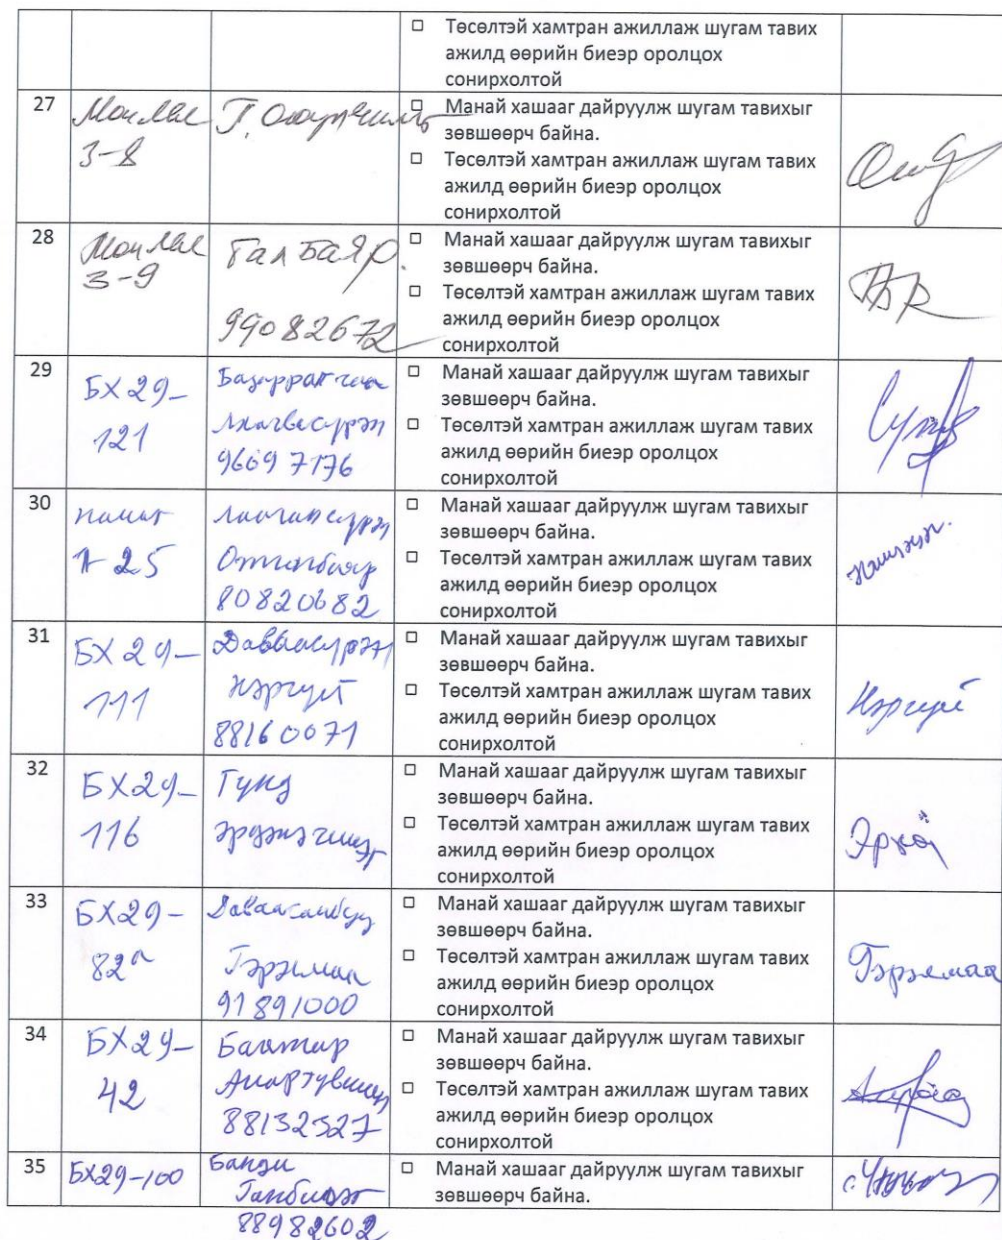 □ Төсөлтэй хамтран ажиллаж шугам тавих
ажилд өөрийн биеэр оролцох
сонирхолтой
27
3-8
□ Манай хашааг дайруулж шугам тавихыг
зөвшөөрч байна.
□ Төсөлтэй хамтран ажиллаж шугам тавих
ажилд өөрийн биеэр оролцох
сонирхолтой
28
3-9
Ганбаяр.
99082672
□ Манай хашааг дайруулж шугам тавихыг
зөвшөөрч байна.
□ Төсөлтэй хамтран ажиллаж шугам тавих
ажилд өөрийн биеэр оролцох
сонирхолтой
29
БХ 29-
121
Лхагвасүрэн
96697176
□ Манай хашааг дайруулж шугам тавихыг
зөвшөөрч байна.
□ Төсөлтэй хамтран ажиллаж шугам тавих
ажилд өөрийн биеэр оролцох
сонирхолтой
30
25
Отгонбаяр
80820682
□ Манай хашааг дайруулж шугам тавихыг
зөвшөөрч байна.
□ Төсөлтэй хамтран ажиллаж шугам тавих
ажилд өөрийн биеэр оролцох
сонирхолтой
31
БХ 29-
111
Даваасүрэн
Нэргүй
88160071
□ Манай хашааг дайруулж шугам тавихыг
зөвшөөрч байна.
□ Төсөлтэй хамтран ажиллаж шугам тавих
ажилд өөрийн биеэр оролцох
сонирхолтой
Нэргүй
32
БХ29-
116
Гунд
Эрдэнэчимэг
□ Манай хашааг дайруулж шугам тавихыг
зөвшөөрч байна.
□ Төсөлтэй хамтран ажиллаж шугам тавих
ажилд өөрийн биеэр оролцох
сонирхолтой
33
БХ29-
82а
Даваасамбуу
Гэрэлмаа
91891000
□ Манай хашааг дайруулж шугам тавихыг
зөвшөөрч байна.
□ Төсөлтэй хамтран ажиллаж шугам тавих
ажилд өөрийн биеэр оролцох
сонирхолтой
Гэрэлмаа
34
БХ29-
42
Баатар
Амартүвшин
88132327
□ Манай хашааг дайруулж шугам тавихыг
зөвшөөрч байна.
□ Төсөлтэй хамтран ажиллаж шугам тавих
ажилд өөрийн биеэр оролцох
сонирхолтой
35
БХ29-100
Банди
Ганболд
88982602
□ Манай хашааг дайруулж шугам тавихыг
зөвшөөрч байна.